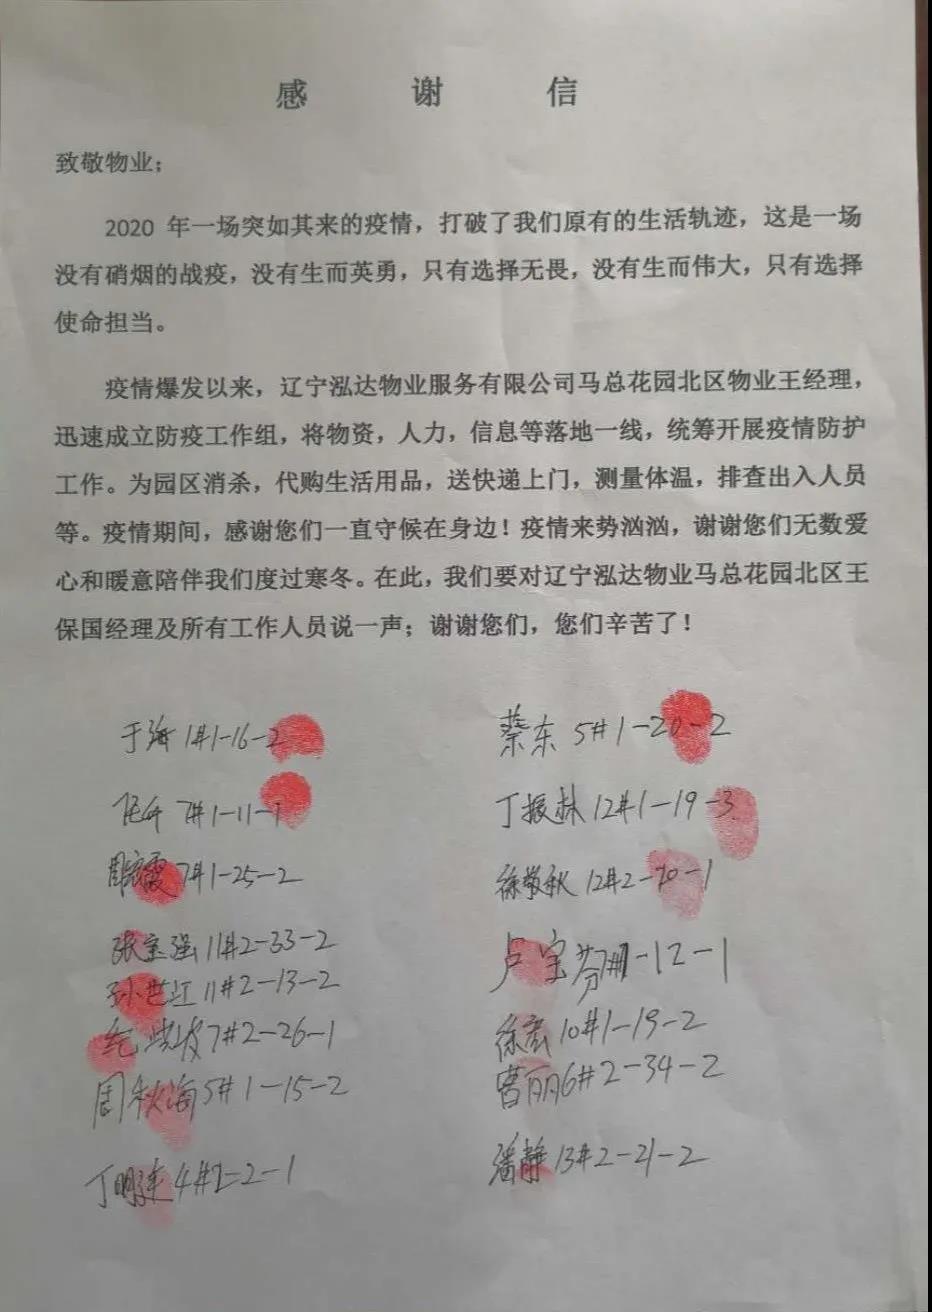 感 谢 信
致敬物业；
2020 年一场突如其来的疫情，打破了我们原有的生活轨迹，这是一场
没有硝烟的战疫，没有生而英勇，只有选择无畏，没有生而伟大，只有选择
使命担当。
疫情爆发以来，辽宁泓达物业服务有限公司马总花园北区物业王经理，
迅速成立防疫工作组，将物资，人力，信息等落地一线，统筹开展疫情防护
工作。为园区消杀，代购生活用品，送快递上门，测量体温，排查出入人员
等。疫情期间，感谢您们一直守候在身边！疫情来势汹汹，谢谢您们无数爱
心和暖意陪伴我们度过寒冬。在此，我们要对辽宁泓达物业马总花园北区王
保国经理及所有工作人员说一声；谢谢您们，您们辛苦了！
于海 1#1-16-2
蔡东 5#1-20-2
7#1-11-1
丁振林 12#1-19-3
7#1-25-2
徐敬秋 12#2-20-1
张宝强 11#2-33-2
卢宝芬 1-12-1
孙世江 11#2-13-2
7#2-26-1
徐宏 10#1-19-2
周秋海 5#1-15-2
曹丽 6#2-34-2
丁明 4# 2-1
潘静 13#2-21-2